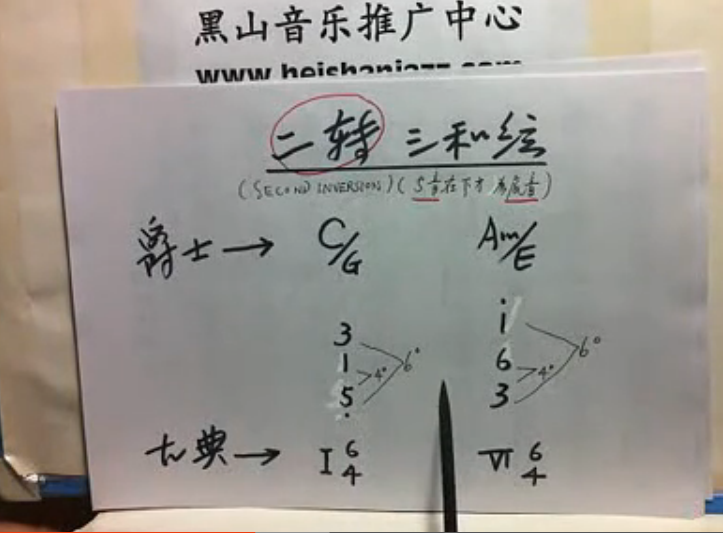 黑山音乐推广中心
www.heishanjazz.com
二转 三和弦
(SECOND INVERSION) (5音在下方 为底音)
爵士 → C/G Am/E
3 i
1 6° 6 6°
4° 4°
5 3
古典 → I 6 4 VI 6 4